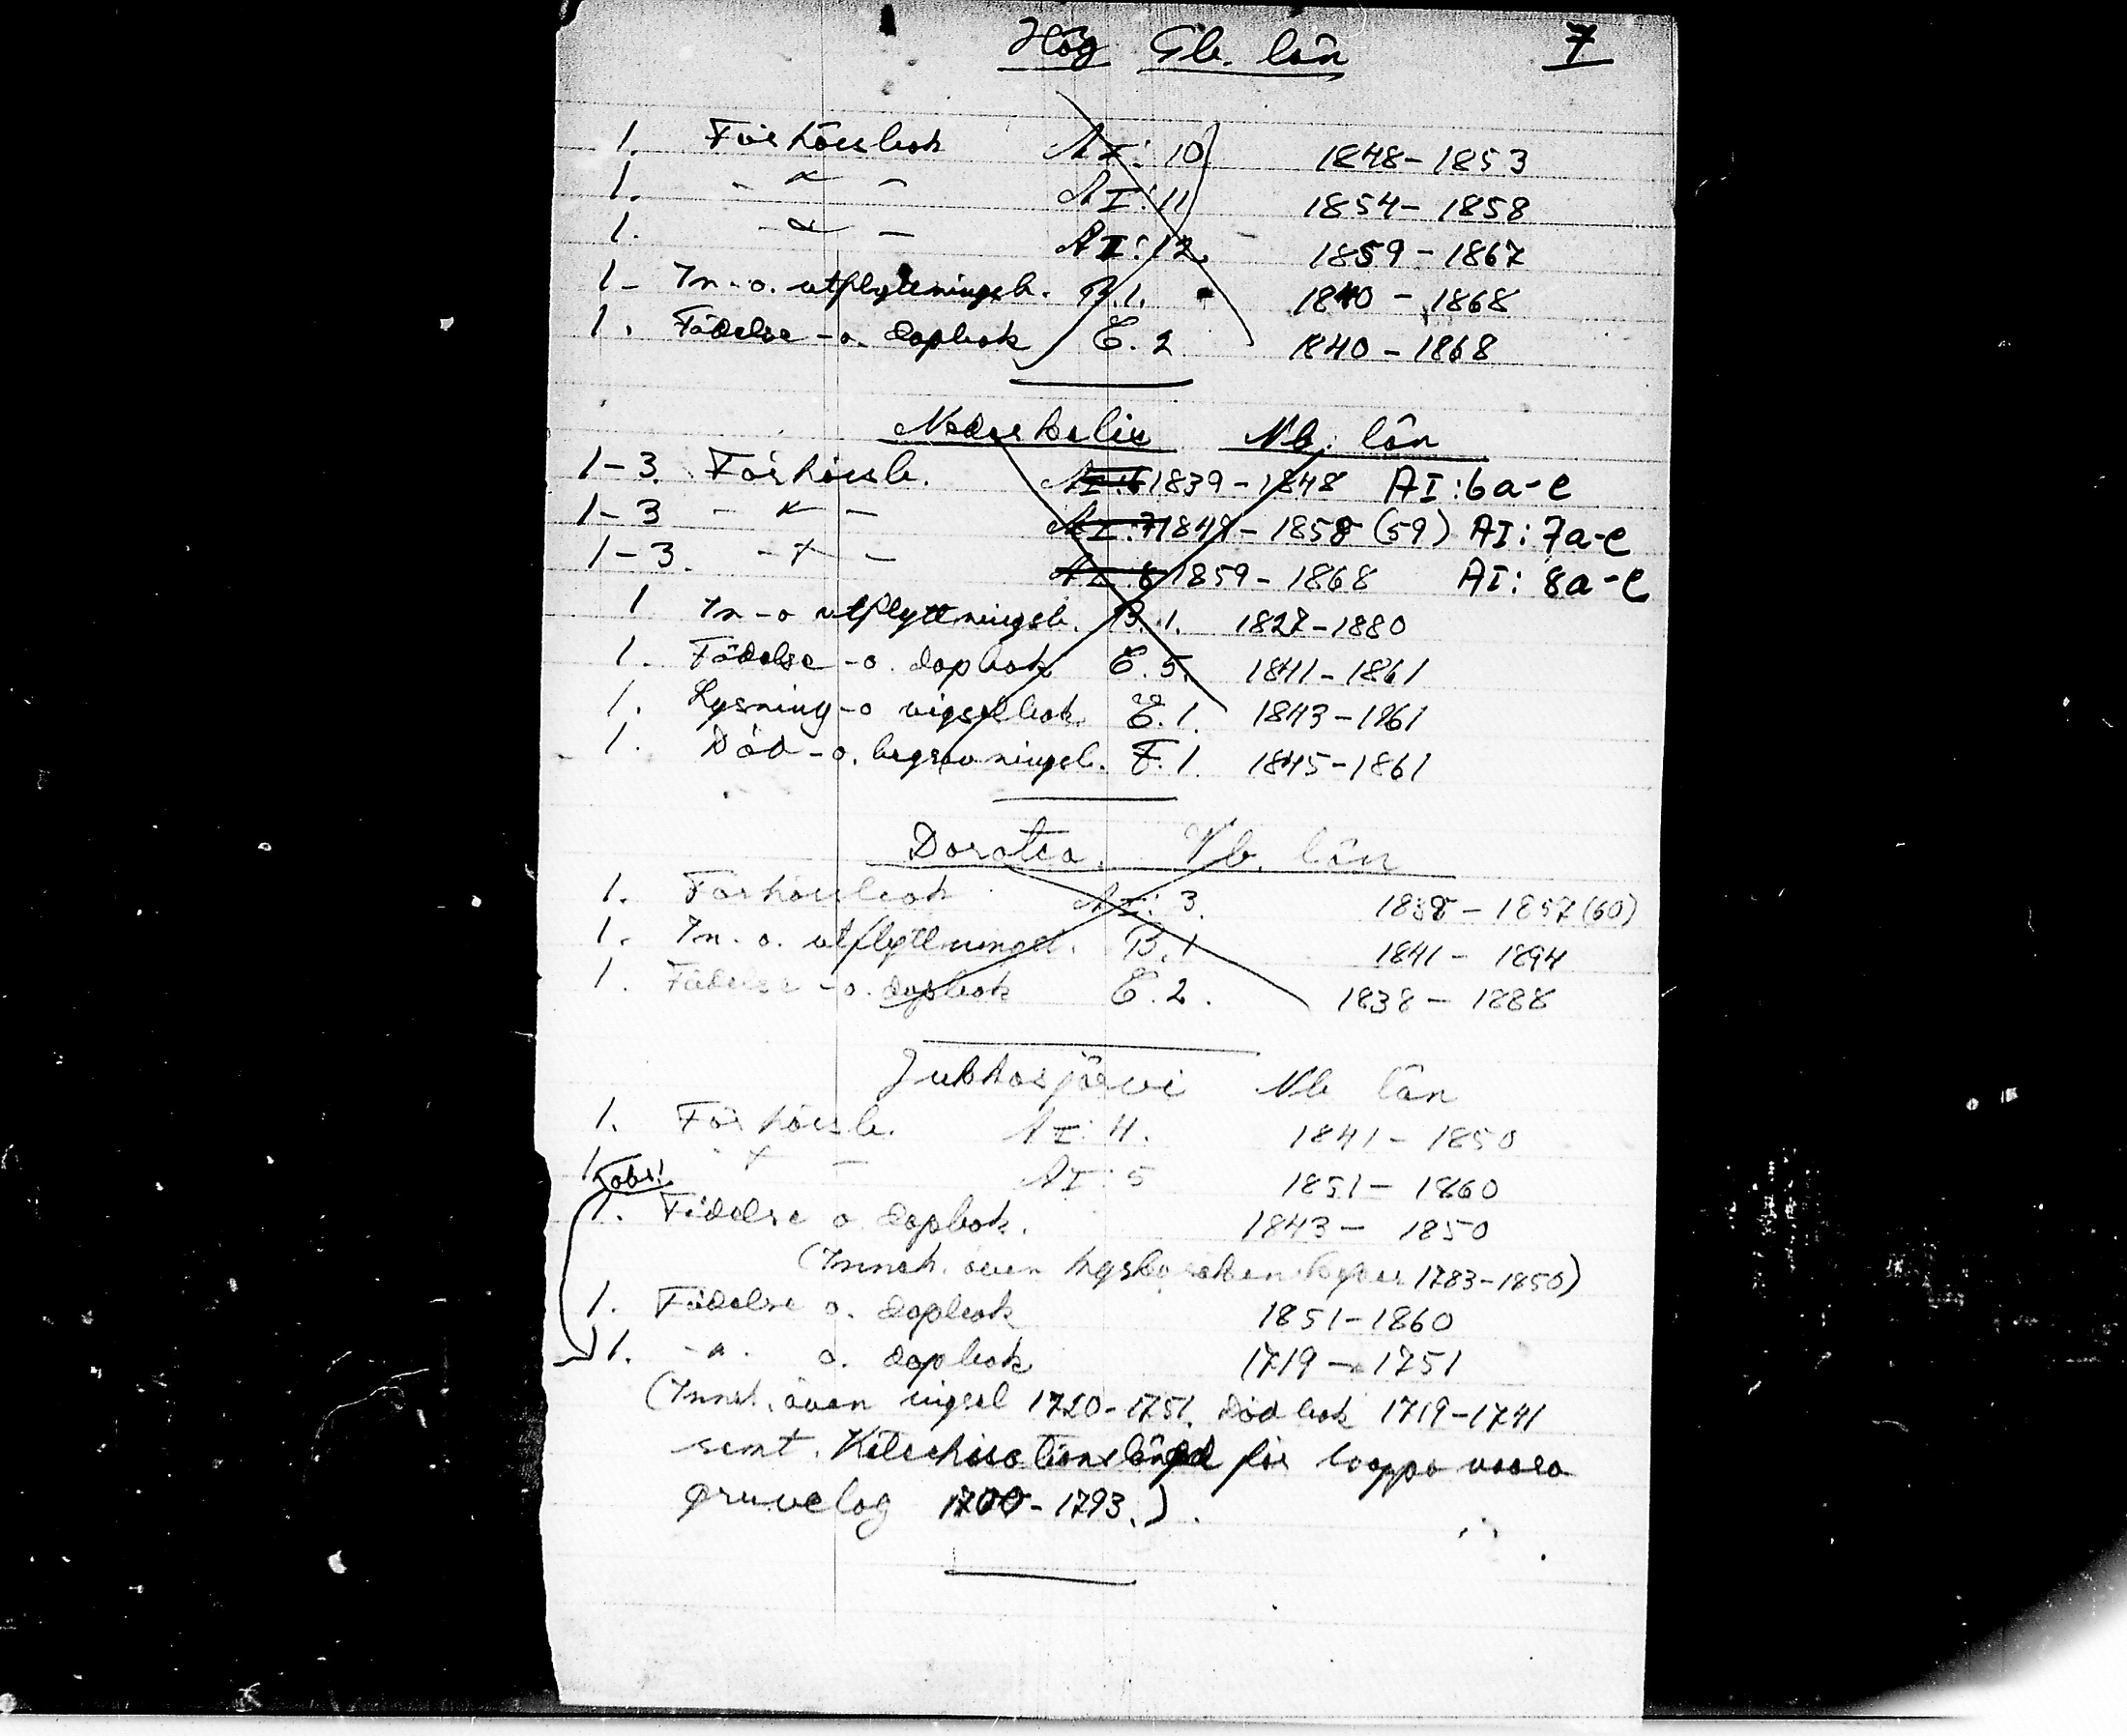 Hög Gb. län 7
1. Förhörsbok AI: 10 1848-1853
1. - " - AI: 11 1854-1858
1. - " - AI: 12. 1859-1867
1- In-o. utflyttningsb. B.1. 1840-1868
1. Födelse-o. dopbok C.2 1840-1868
Nederkalix Nb. län
1-3. Förhörsb. AI:6 1839-1848 AI:6a-e
1-3 - " - AI:7 1849-1858 (59) AI: 7a-e
1-3. - " - 1859-1868 AI: 8a-e
1 In-o utflyttningsb. B.1. 1827-1880
1. Födelse-o. dopbok C.5. 1841-1861
1. Lysning-o vigselbok E.1. 1843-1861
1. Död-o. begravningsb. F.1. 1845-1861
Dorotea. Vb. län
1. Förhörsbok AI: 3. 1838-1857(60)
1. In. o. utflyttningsb. B.1 1841-1894
1. Födelse-o. dopbok C.2. 1838-1888
Jukkasjärvi Nb län
1. Förhörsb. AI: 4. 1841-1850
1. - " - AI: 5 1851-1860
obs!
1. Födelse o. dopbok. 1843-1850
(Inneh. även 1783-1850)
1. Födelse o. dopbok 1851-1860
1. - " - o. dopbok 1719-1751
(Inneh. även vigsel 1720-1751. Död bok 1719-1741
samt. Katechisationslängd för
gruvelag 1700-1793.).